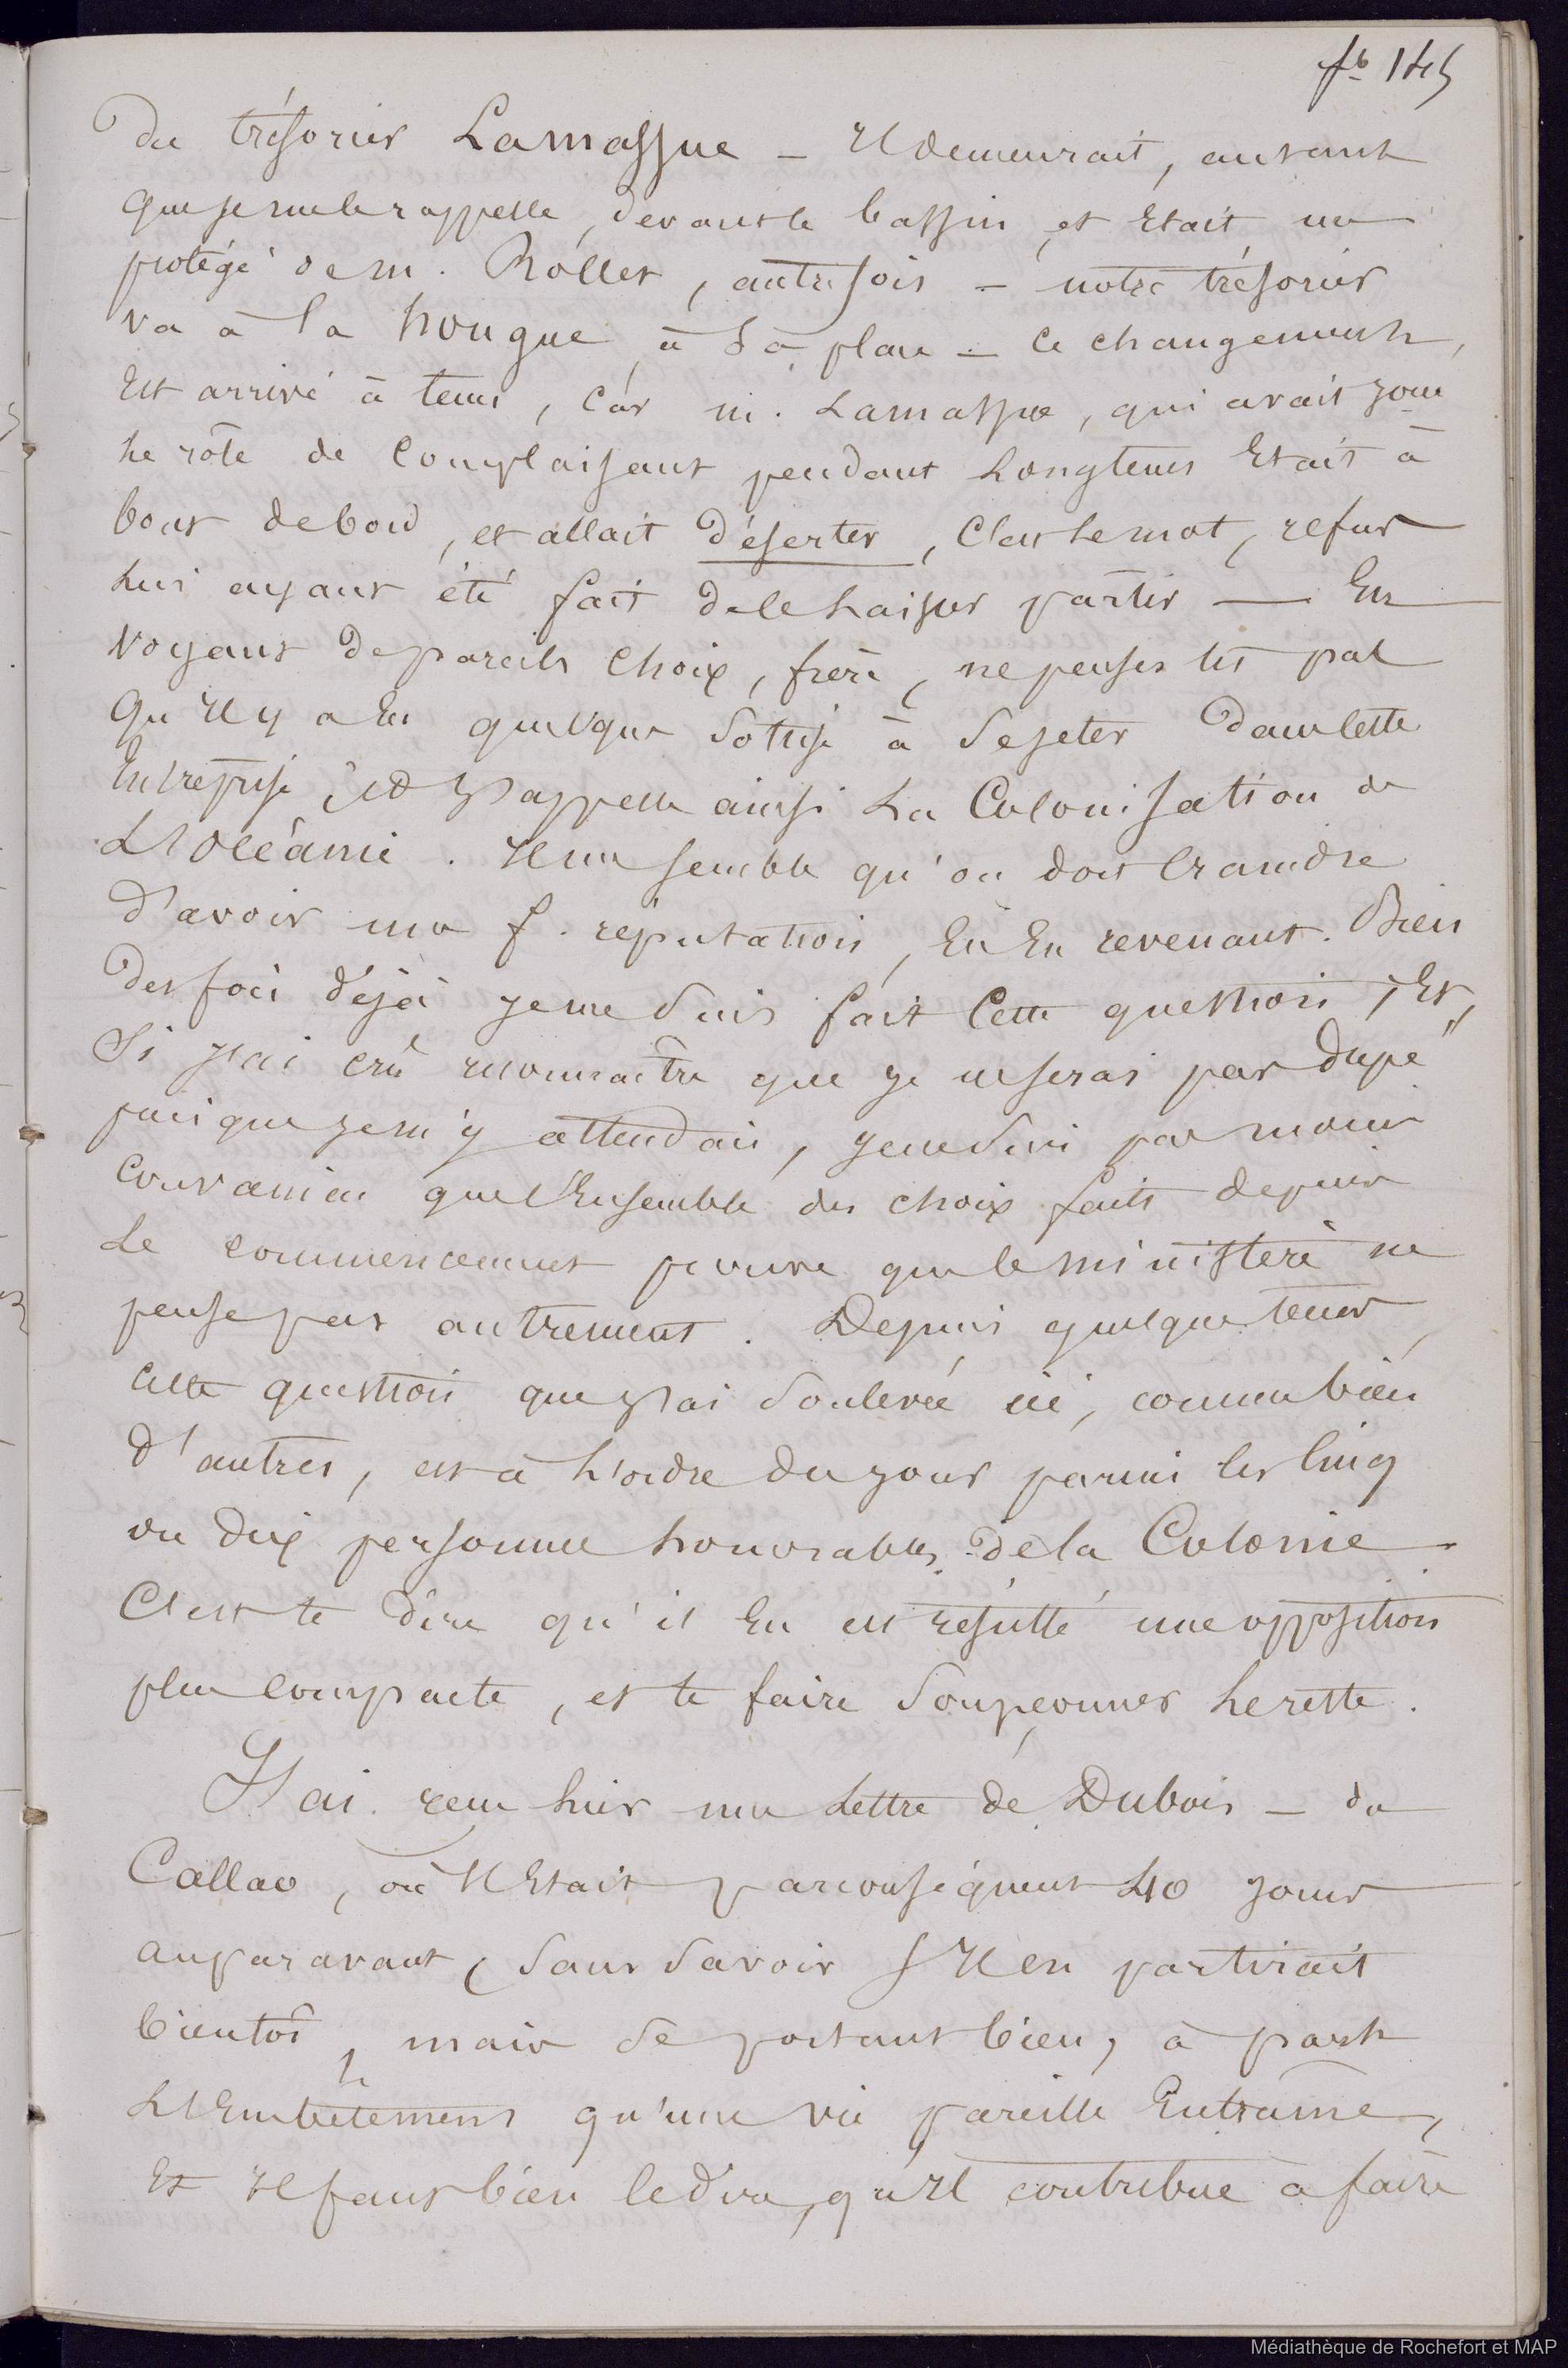 fo 145
du trésorier Lamassue — Il demeurait, autant
que je me le rappelle, devant le bassin, et était un
protégé de m. Roller, autrefois — notre trésorier
va à la hougue, à sa place — ce changement,
Est arrivé à tems, car m. Lamassue, qui avait joué
le rôle de complaisant pendant longtems Etait à
bout de bord, et allait déserter, c'est le mot, refus
lui ayant été fait de le laisser partir — En
voyant de pareils choix, frère, ne penses tu pas
qu'Il y a Eu quelque sottise à se jeter dans cette
Entreprise, J'appelle ainsi La Colonisation de
L'Océanie. Il me semble qu'on doit craindre
d'avoir une f. réputation, En En revenant. Bien
des fois déjà je me suis fait cette question, Et,
si j'ai crû reconnaître que je ne serai pas dupe
puisque je m'y attendais, je ne suis pas moins
convaincu que l'Ensemble des choix faits depuis
Le commencement prouve que le ministère ne
pense pas autrement. Depuis quelque tems,
cette question que j'ai soulevée ici, comme bien
d'autres, est à l'ordre du jour parmi les cinq
ou dix personnes honorables de la Colonie —
C'est te dire qu'il En est résulté une opposition
plus compacte, et te faire soupçonner le reste.
J'ai reçu hier une lettre de Dubois — du
Callao, où Il Etait par conséquent 40 jours
auparavant, sans savoir s'Il en partirait
bientôt, mais se portant bien, à part
L'Embêtement qu'une vie pareille Entraîne,
Et Il faut bien le dire, qu'Il contribue à faire
Médiathèque de Rochefort et MAP